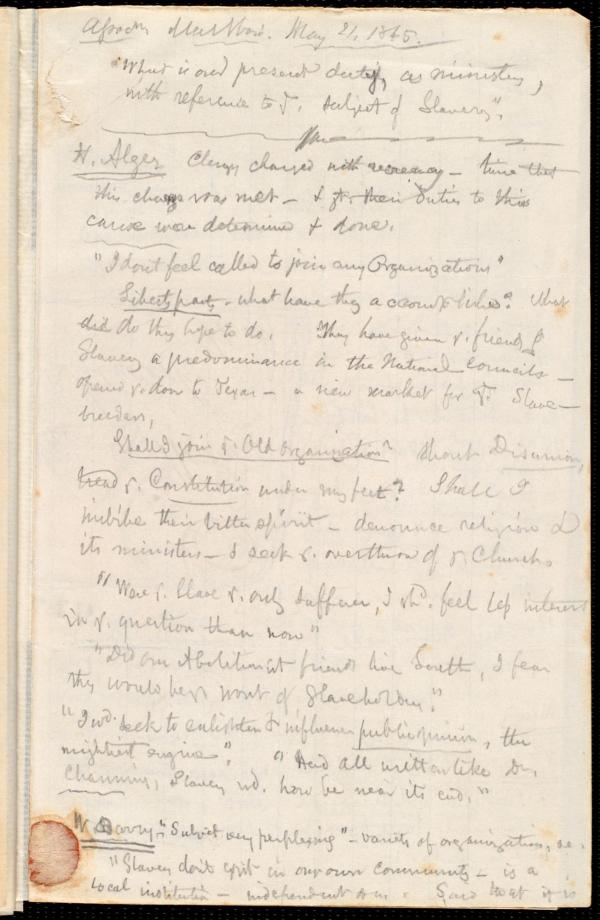 May 21, 1845.
"What is our present duty, as ministers,
with reference to t. subject of Slavery".
H. Alger Clergy charged with recreancy - time that
this charge was met - & their duties to this
cause were determined & done.
"I don't feel called to join any Organizations"
Liberty party - what have they accomplished? What
did do they hope to do. They have given t. friends of
Slavery a predominance in the National Councils -
opened t. door to Texas - a new market for t. Slave-
breeders,
Shall I join t. Old Organization? Shout Disunion,
tread t. Constitution under my feet? Shall I
imbibe their bitter spirit - denounce religion &
its ministers - & seek t. overthrow of t. Church.
"Were t. Slave t. only sufferer, I shd. feel less interest
in t. question than now"
"Did our Abolitionist friends live South, I fear
they would be t. worst of Slaveholders."
"I wd. seek to enlighten & influence public opinion, the
mightiest engine". "Had all written like Dr.
Channing, Slavery wd. now be near its end."
"Subject very perplexing" - variety of organizations, &c.
"Slavery don't exist in our own community - is a
local institution - independent of us - Said that it is